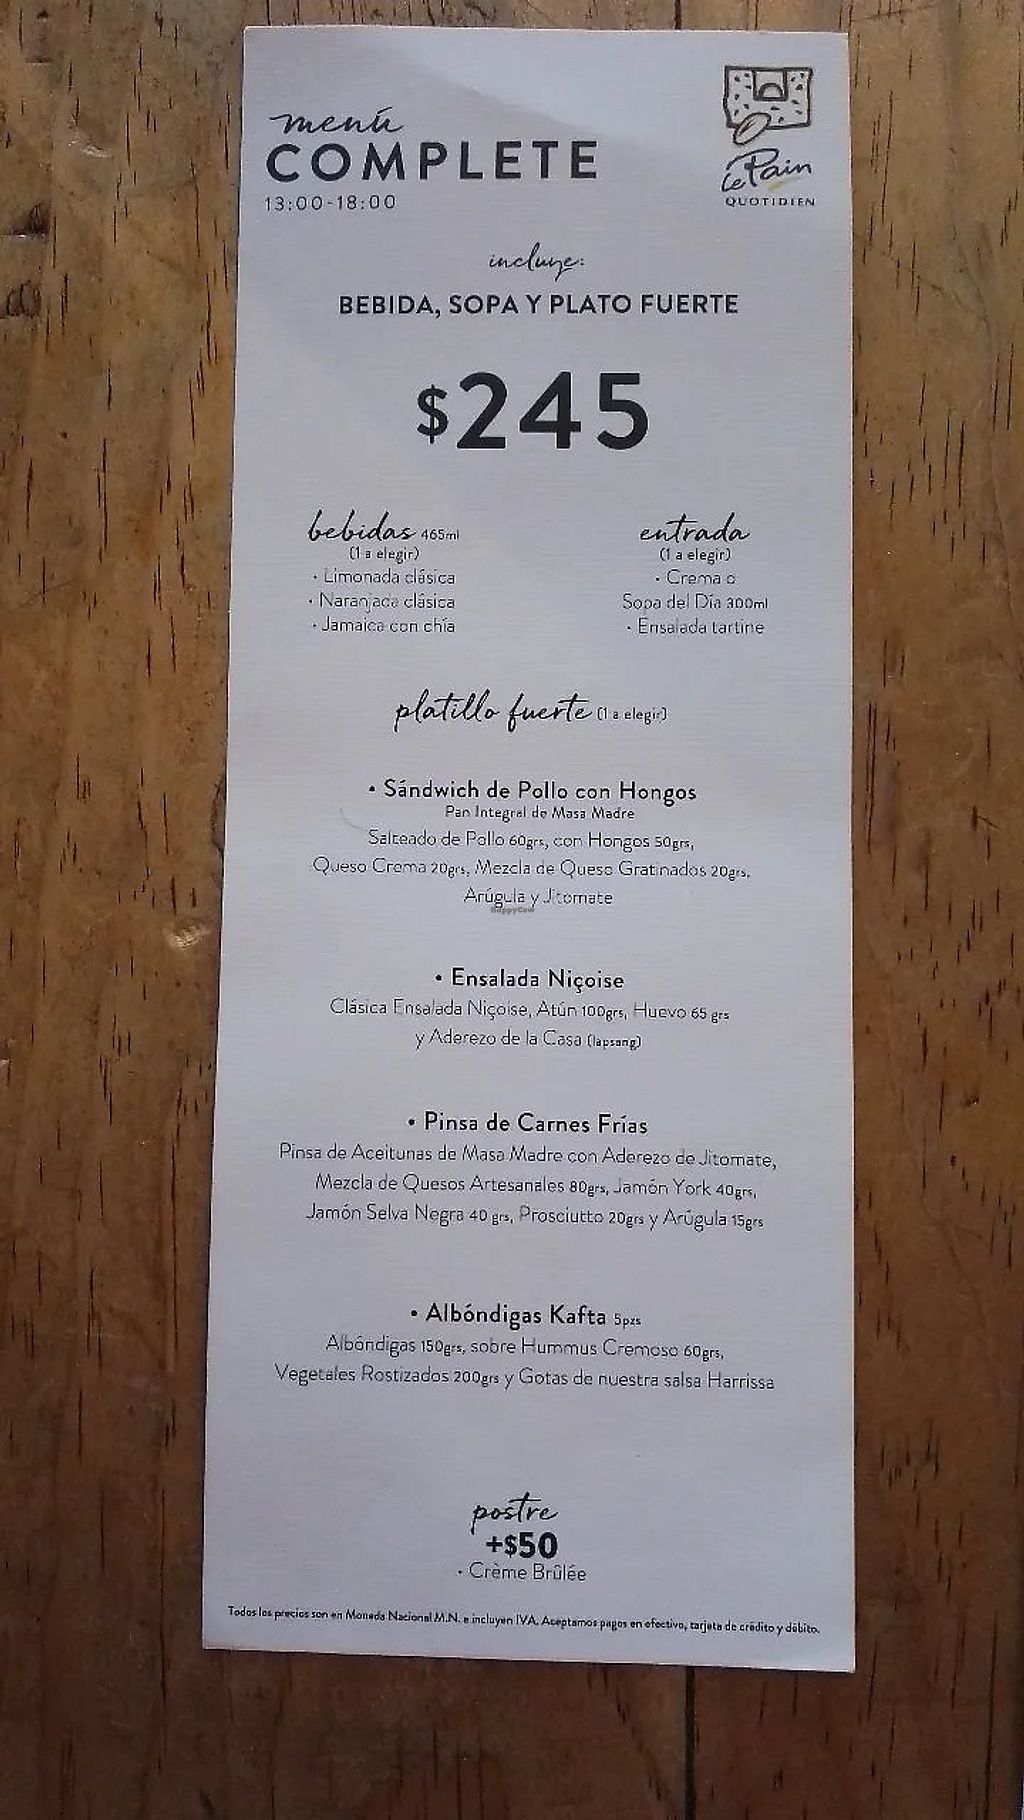 menú
COMPLETE
13:00-18:00
le Pain
QUOTIDIEN
incluye:
BEBIDA, SOPA Y PLATO FUERTE
$245
bebidas 465ml
(1 a elegir)
• Limonada clásica
• Naranjada clásica
• Jamaica con chía
entrada
(1 a elegir)
• Crema o
Sopa del Día 300ml
• Ensalada tartine
platillo fuerte (1 a elegir)
• Sándwich de Pollo con Hongos
Pan Integral de Masa Madre
Salteado de Pollo 60grs, con Hongos 50grs,
Queso Crema 20grs, Mezcla de Queso Gratinados 20grs,
Arúgula y Jitomate
HappyCow
• Ensalada Niçoise
Clásica Ensalada Niçoise, Atún 100grs, Huevo 65 grs
y Aderezo de la Casa (lapsang)
• Pinsa de Carnes Frías
Pinsa de Aceitunas de Masa Madre con Aderezo de Jitomate,
Mezcla de Quesos Artesanales 80grs, Jamón York 40grs,
Jamón Selva Negra 40 grs, Prosciutto 20grs y Arúgula 15grs
• Albóndigas Kafta 5pzs
Albóndigas 150grs, sobre Hummus Cremoso 60grs,
Vegetales Rostizados 200grs y Gotas de nuestra salsa Harrissa
postre
+$50
• Crème Brûlée
Todos los precios son en Moneda Nacional M.N. e incluyen IVA. Aceptamos pagos en efectivo, tarjeta de crédito y débito.